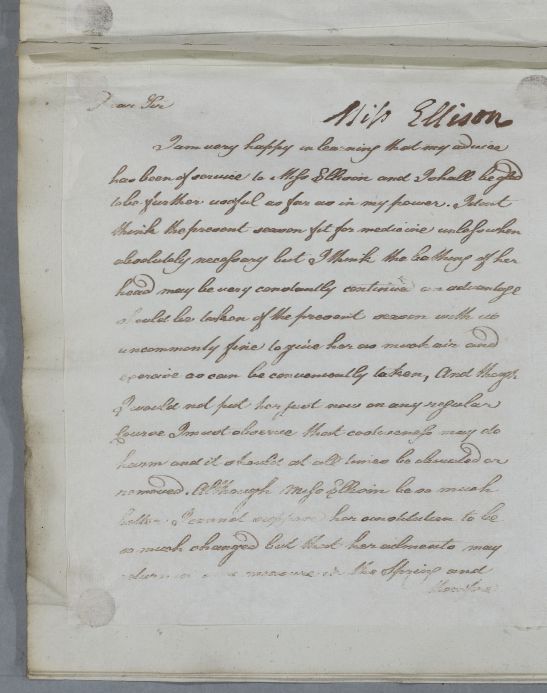 Dear Sir
Miss Ellison
I am very happy in learning that my advice
has been of service to Miss Ellison and I shall be glad
to be further useful as far as in my power. I dont
think the present season fit for medicine unless when
absolutely necessary but I think the bathing of her
head may be very constantly continued an advantage
should be taken of the present season with us
uncommonly fine to give her as much air and
exercise as can be conveniently taken, And though
I would not put her just now on any regular
Course I must observe that costiveness may do
harm and it should at all times be obviated or
removed. Although Miss Ellison be so much
better I cannot suppose her constitution to be
so much changed but that her ailments may
return in some measure in the Spring and
therefore